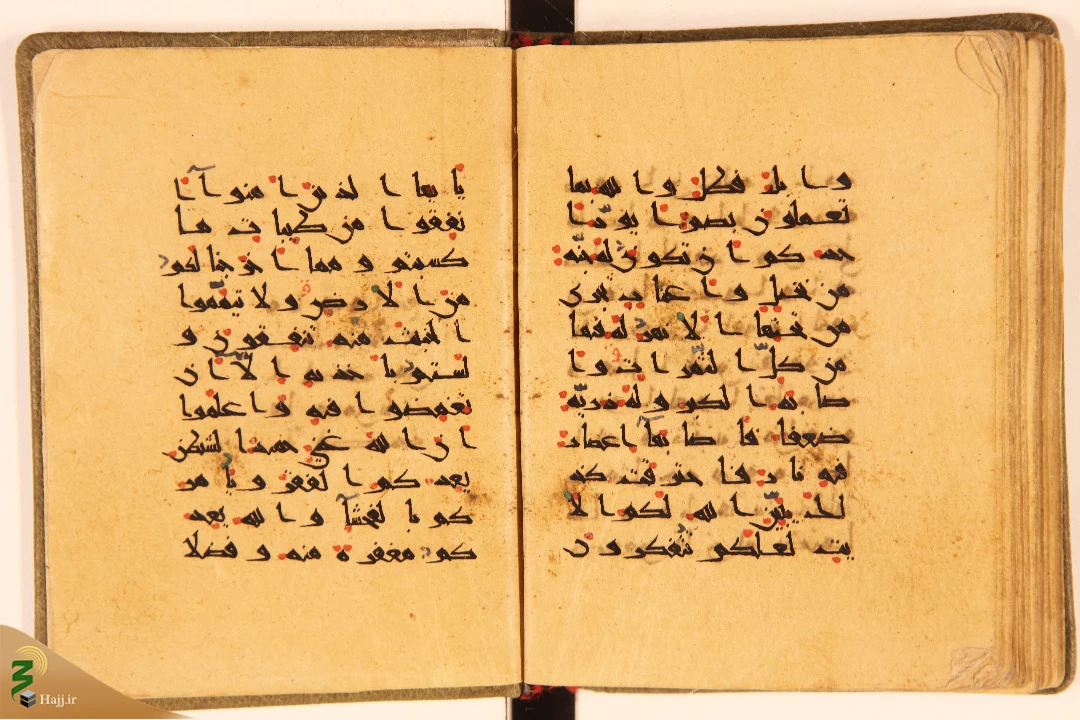 وابل فطل والله بما
تعملون بصير ا يود ا
حدكم ان تكون له جنة
من نخيل واعناب تجرى
من تحتها الانهر له فيها
من كل الثمرات وا
صابه الكبر وله ذرية
ضعفا فاصابها اعصار
فيه نار فاحترقت كذ
لك يبين الله لكم الا
يت لعلكم تتفكرون
يايها الذين امنوا ا
نفقوا من طيبات ما
كسبتم ومما اخرجنا لكم
من الارض ولا تيمموا
الخبيث منه تنفقون و
لستم باخذيه الا ان
تغمضوا فيه واعلموا
ان الله غنى حميد الشيطن
يعدكم الفقر ويامر
كم بالفحشا والله يعد
كم مغفرة منه وفضلا
Hajj.ir